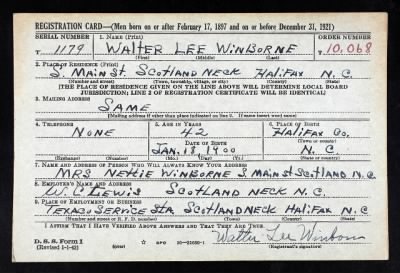 REGISTRATION CARD—(Men born on or after February 17, 1897 and on or before December 31, 1921)
SERIAL NUMBER 1. NAME (Print) ORDER NUMBER
T 1179 WALTER LEE WINBORNE T 10,068
(First) (Middle) (Last)
2. PLACE OF RESIDENCE (Print)
S. MAIN ST. SCOTLAND NECK HALIFAX N.C.
(Number and street) (Town, township, village, or city) (County) (State)
[THE PLACE OF RESIDENCE GIVEN ON THE LINE ABOVE WILL DETERMINE LOCAL BOARD
JURISDICTION; LINE 2 OF REGISTRATION CERTIFICATE WILL BE IDENTICAL]
3. MAILING ADDRESS
SAME
[Mailing address if other than place indicated on line 2. If same insert word same]
4. TELEPHONE 5. AGE IN YEARS 6. PLACE OF BIRTH
NONE 42 HALIFAX CO.
DATE OF BIRTH (Town or county)
JAN. 18 1900 N.C.
(Exchange) (Number) (Mo.) (Day) (Yr.) (State or country)
7. NAME AND ADDRESS OF PERSON WHO WILL ALWAYS KNOW YOUR ADDRESS
MRS NETTIE WINBORNE S MAIN ST SCOTLAND N.C.
8. EMPLOYER'S NAME AND ADDRESS
W.C. LEWIS SCOTLAND NECK N.C.
9. PLACE OF EMPLOYMENT OR BUSINESS
TEXACO SERVICE STA. SCOTLAND NECK HALIFAX N.C
(Number and street or R. F. D. number) (Town) (County) (State)
I AFFIRM THAT I HAVE VERIFIED ABOVE ANSWERS AND THAT THEY ARE TRUE.
D. S. S. Form 1
(Revised 1-1-42) (over) GPO Walter Lee Winborne
(Registrant's signature)